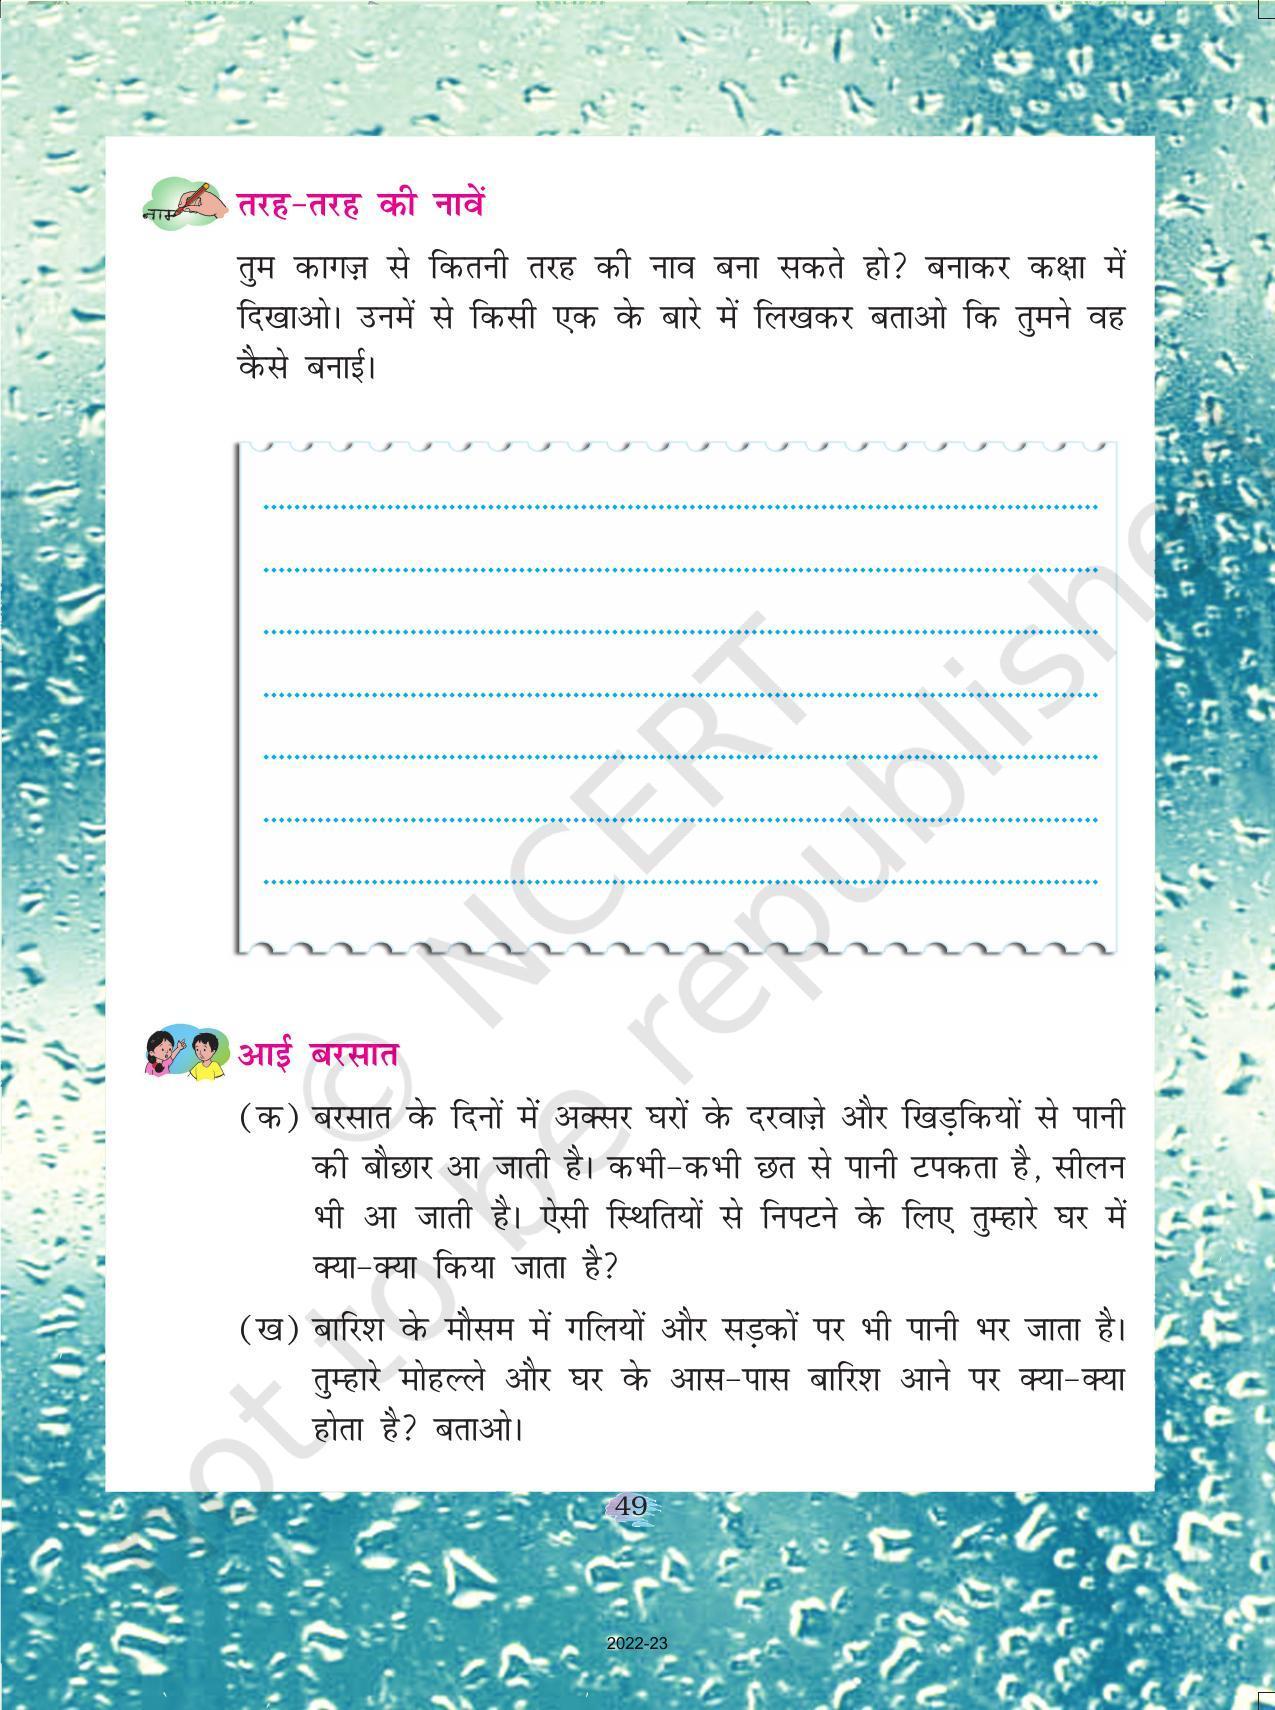 नाम
तरह-तरह की नावें
तुम कागज़ से कितनी तरह की नाव बना सकते हो? बनाकर कक्षा में
दिखाओ। उनमें से किसी एक के बारे में लिखकर बताओ कि तुमने वह
कैसे बनाई।
© NCERT
not to be republishe
आई बरसात
(क) बरसात के दिनों में अक्सर घरों के दरवाज़े और खिड़कियों से पानी
की बौछार आ जाती है। कभी-कभी छत से पानी टपकता है, सीलन
भी आ जाती है। ऐसी स्थितियों से निपटने के लिए तुम्हारे घर में
क्या-क्या किया जाता है?
(ख) बारिश के मौसम में गलियों और सड़कों पर भी पानी भर जाता है।
तुम्हारे मोहल्ले और घर के आस-पास बारिश आने पर क्या-क्या
होता है? बताओ।
49
2022-23